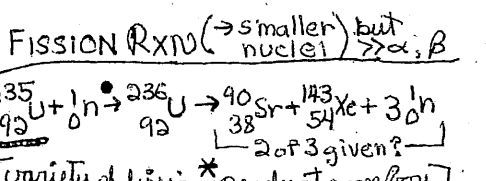 FISSION RXN (→ smaller nuclei) but >> α, β
²³⁵₉₂U + ¹₀n → ²³⁶₉₂U → ⁹⁰₃₈Sr + ¹⁴³₅₄Xe + 3 ¹₀n
2 of 3 given?
variety of *